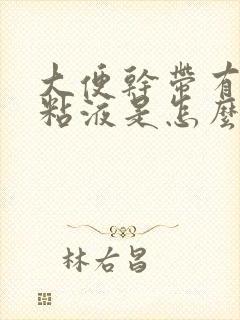 大便幹帶有
粘液是怎麼
林右昌